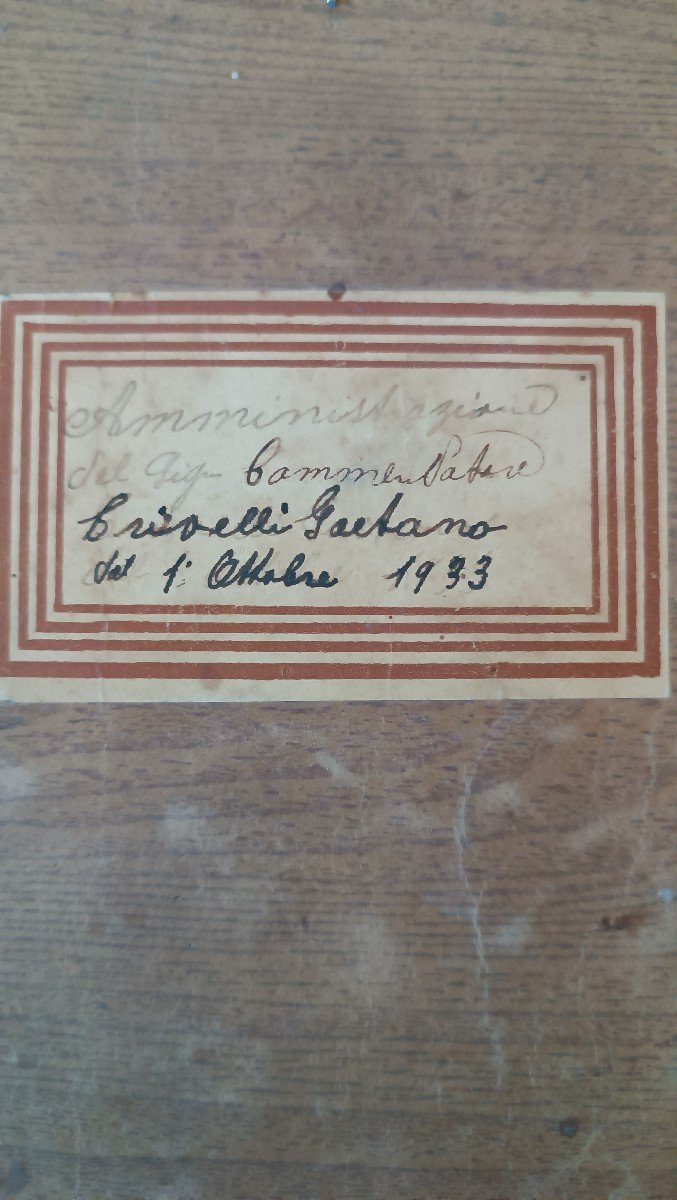 Amministrazione
del Sig. Commendatore
Crivelli Gaetano
dal 1: Ottobre 1933